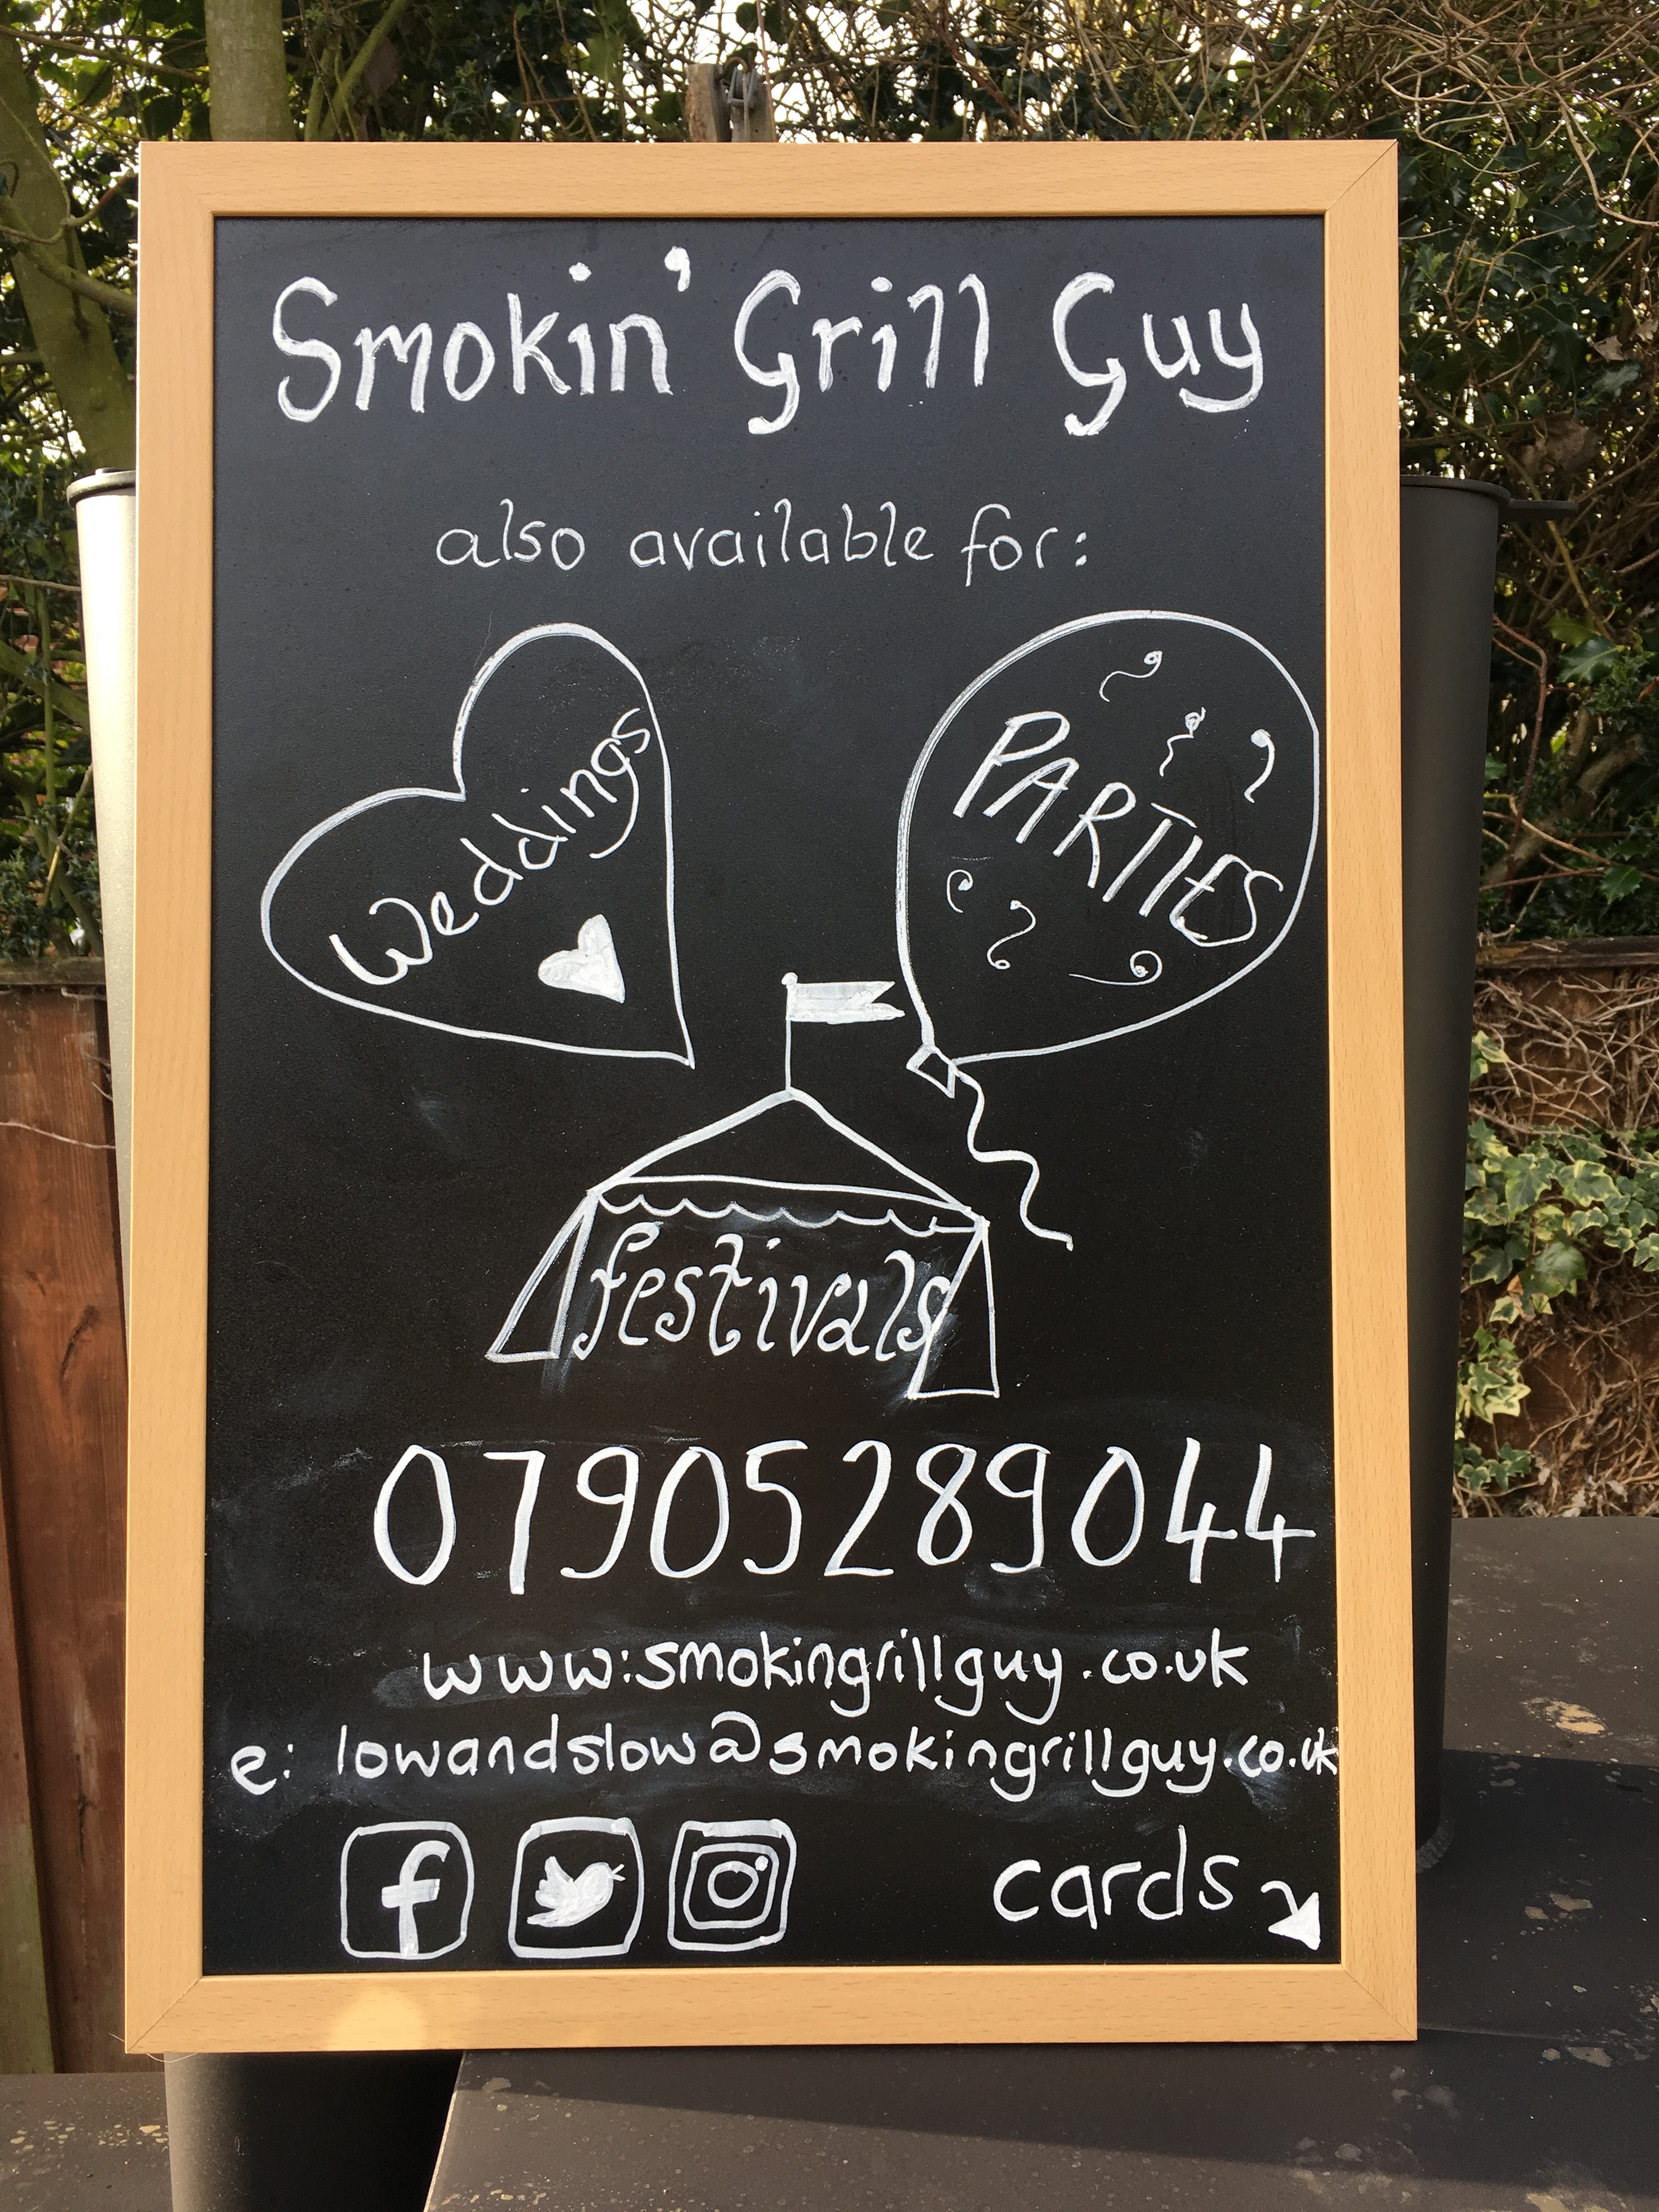 Smokin' Grill Guy
also available for:
Weddings
PARTIES
festivals
07905289044
www:smokingrillguy.co.uk
e: lowandslow@smokingrillguy.co.uk
f
cards